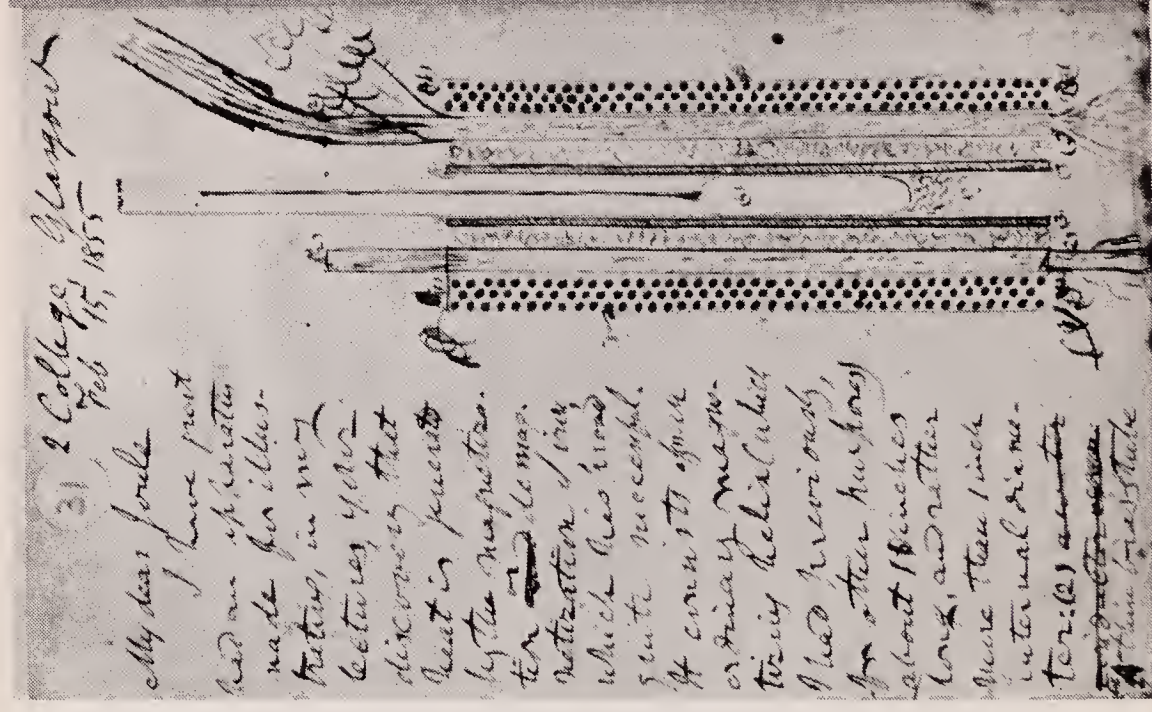 31
2 College Glasgow
Feb 15, 1855
My dear Joule
I have just
had an apparatus
made for illus-
trating in my
lectures your
discovery that
heat is
by the magnetiza-
tion or demag-
netization of iron
which has proved
quite successful.
It consists of an
ordinary magne-
tizing helix (which
I had previously,
for other purposes)
about 18 inches
long, and rather
more than 1 inch
internal diame-
ter: (2) a
thin brass tube